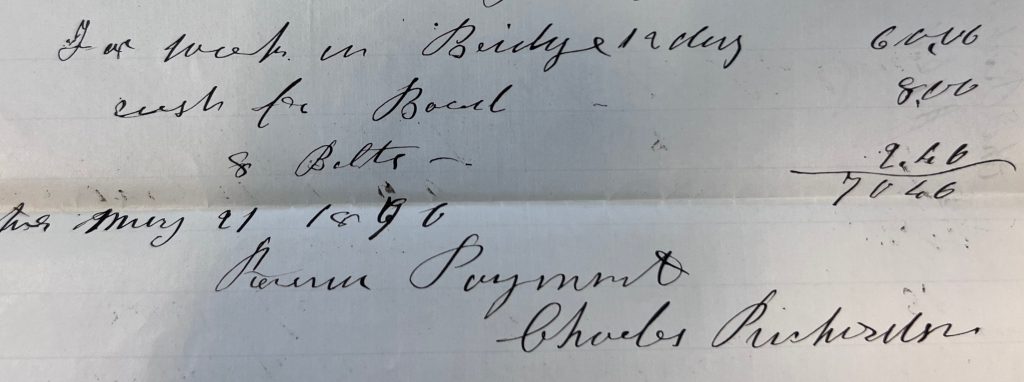 For work on Bridge 12 day 60.00
cash for Board - 8.00
8 Bolts - 2.40
70 40
May 21 1870
Received Payment
Charles Richardson